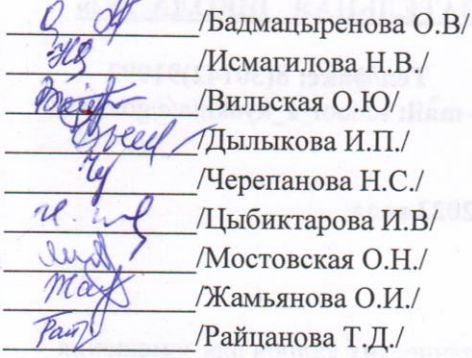 /Бадмацыренова О.В/
/Исмагилова Н.В./
/Вильская О.Ю/
/Дылыкова И.П./
/Черепанова Н.С./
/Цыбиктарова И.В/
/Мостовская О.Н./
/Жамьянова О.И./
/Райцанова Т.Д./